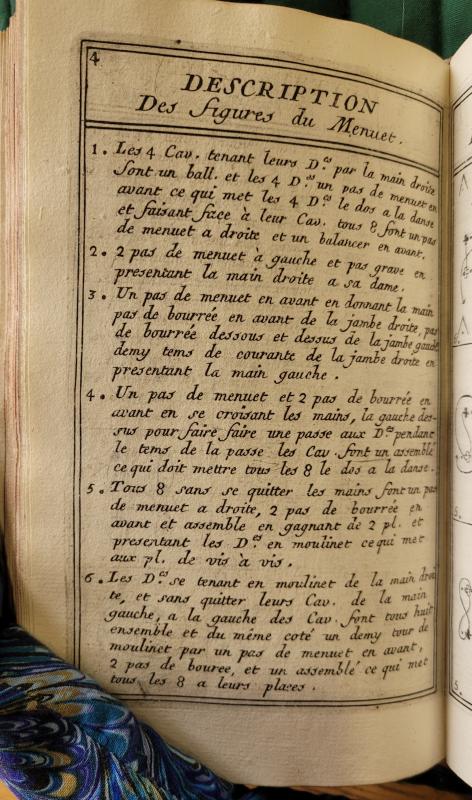 4
DESCRIPTION
Des figures du Menuet.
1. Les 4 Cav. tenant leurs D.es par la main droite
font un ball. et les 4 D.es un pas de menuet en
avant ce qui met les 4 D.es le dos a la danse
et faisant face à leur Cav. tous 8 font un pas
de menuet a droite et un balancer en avant.
2. 2 pas de menuet à gauche et pas grave en
presentant la main droite a sa dame.
3. Un pas de menuet en avant en donnant la main
pas de bourrée en avant de la jambe droite, pas
de bourrée dessous et dessus de la jambe gauche
demy tems de courante de la jambe droite en
presentant la main gauche.
4. Un pas de menuet et 2 pas de bourrée en
avant en se croisant les mains, la gauche des-
sus pour faire faire une passe aux D.es pendant
le tems de la passe les Cav. font un assemblé
ce qui doit mettre tous les 8 le dos a la danse.
5. Tous 8 sans se quitter les mains font un pas
de menuet a droite, 2 pas de bourrée en
avant et assemble en gagnant de 2 pl. et
presentant les D.es en moulinet ce qui met
aux pl. de vis à vis.
6. Les D.es se tenant en moulinet de la main droi
te, et sans quitter leurs Cav. de la main
gauche, a la gauche des Cav. font tous huit
ensemble et du même coté un demy tour de
moulinet par un pas de menuet en avant,
2 pas de bouree, et un assemblé ce qui met
tous les 8 a leurs places.